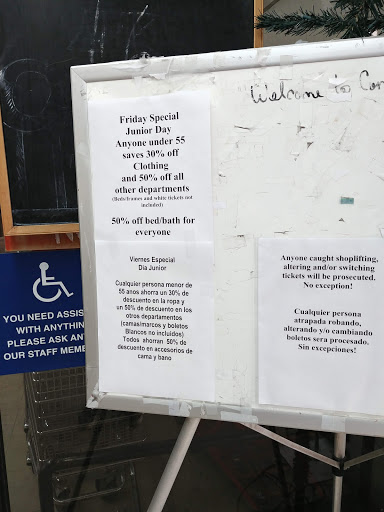 Welcome to
Friday Special
Junior Day
Anyone under 55
saves 30% off
Clothing
and 50% off all
other departments
(Beds/frames and white tickets not
included)
50% off bed/bath for
everyone
Viernes Especial
Dia Junior
Cualquier persona menor de
55 anos ahorra un 30% de
descuento en la ropa y
un 50% de descuento en los
otros departamentos
(camas/marcos y boletos
Blancos no incluidos)
Todos ahorran 50% de
descuento en accesorios de
cama y bano
Anyone caught shoplifting,
altering and/or switching
tickets will be prosecuted.
No exception!
Cualquier persona
atrapada robando,
alterando y/o cambiando
boletos sera procesado.
Sin excepciones!
YOU NEED ASSIS
WITH ANYTHIN
PLEASE ASK AN
OUR STAFF MEMB